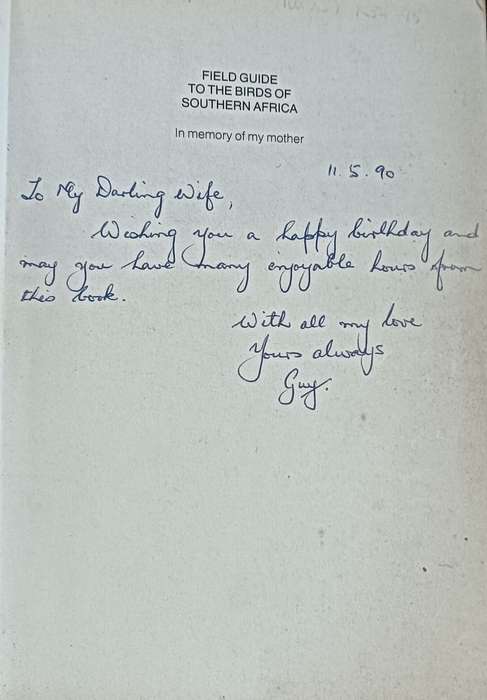 FIELD GUIDE
TO THE BIRDS OF
SOUTHERN AFRICA
In memory of my mother
11. 5. 90
To My Darling Wife,
Wishing you a happy birthday and
may you have many enjoyable hours from
this book.
With all my love
Yours always
Guy.